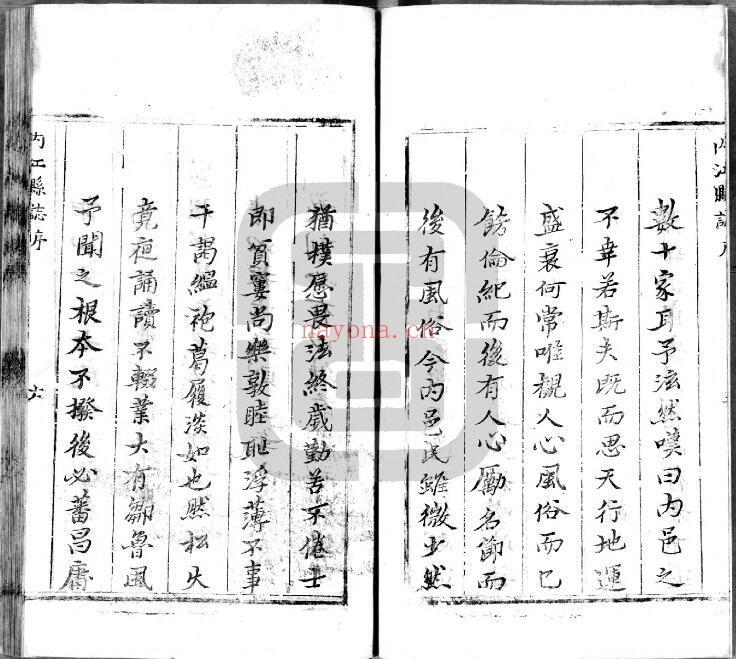 數十家耳予泫然嘆曰內邑之
不幸若斯夫既而思天行地運
盛衰何常唯觀人心風俗而已
飭倫紀而後有人心勵名節而
後有風俗今內邑民雖微少然
猶樸愿畏法終歲勤苦不倦士
即貧窶尚樂敦睦恥浮薄不事
干謁縕袍葛履淡如也然松火
竟夜誦讀不輟業大有鄒魯風
予聞之根本不撥後必蕃昌
內江縣誌序
六
內江縣
nayona.cn